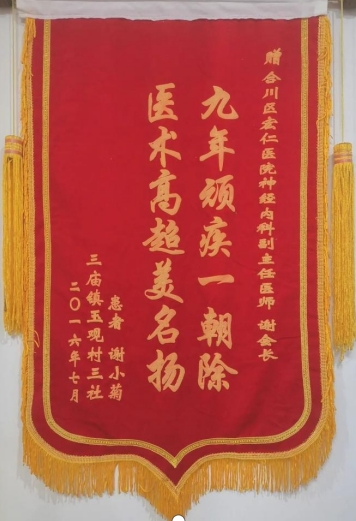 赠合川区宏仁医院神经内科副主任医师 谢会长
九年顽疾一朝除
医术高超美名扬
患者 谢小菊
三庙镇玉观村三社
二〇一六年七月